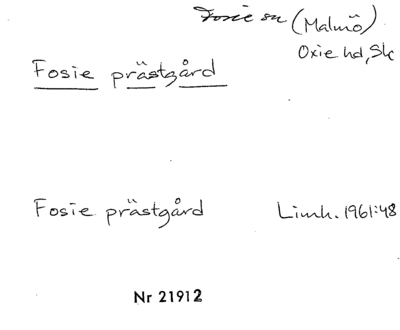 Fosie sn (Malmö)
Oxie hd, Sk
Fosie prästgård
Fosie prästgård Limh. 1961:48
Nr 21912